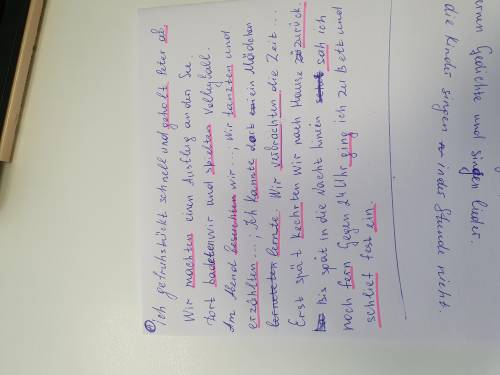 Ich gefruhstückt schnell und geholt Peter ab.
Wir machten einen Ausflug an den See.
Dort badeten wir und spielten Volleyball.
Am Abend besuchten wir ...; Wir tanzten und
erzählten ...; Ich kannte dort ein Mädchen
lernte. Wir verbrachten die Zeit ...
Erst spät kechrten wir nach Hause zurück.
Bis spät in die Nacht hinein sah ich
noch fern Gegen 24 Uhr ging ich zu Bett und
schlief fest ein.
Gedichte und singen lieder.
die Kinder singen in der Stunde nicht.